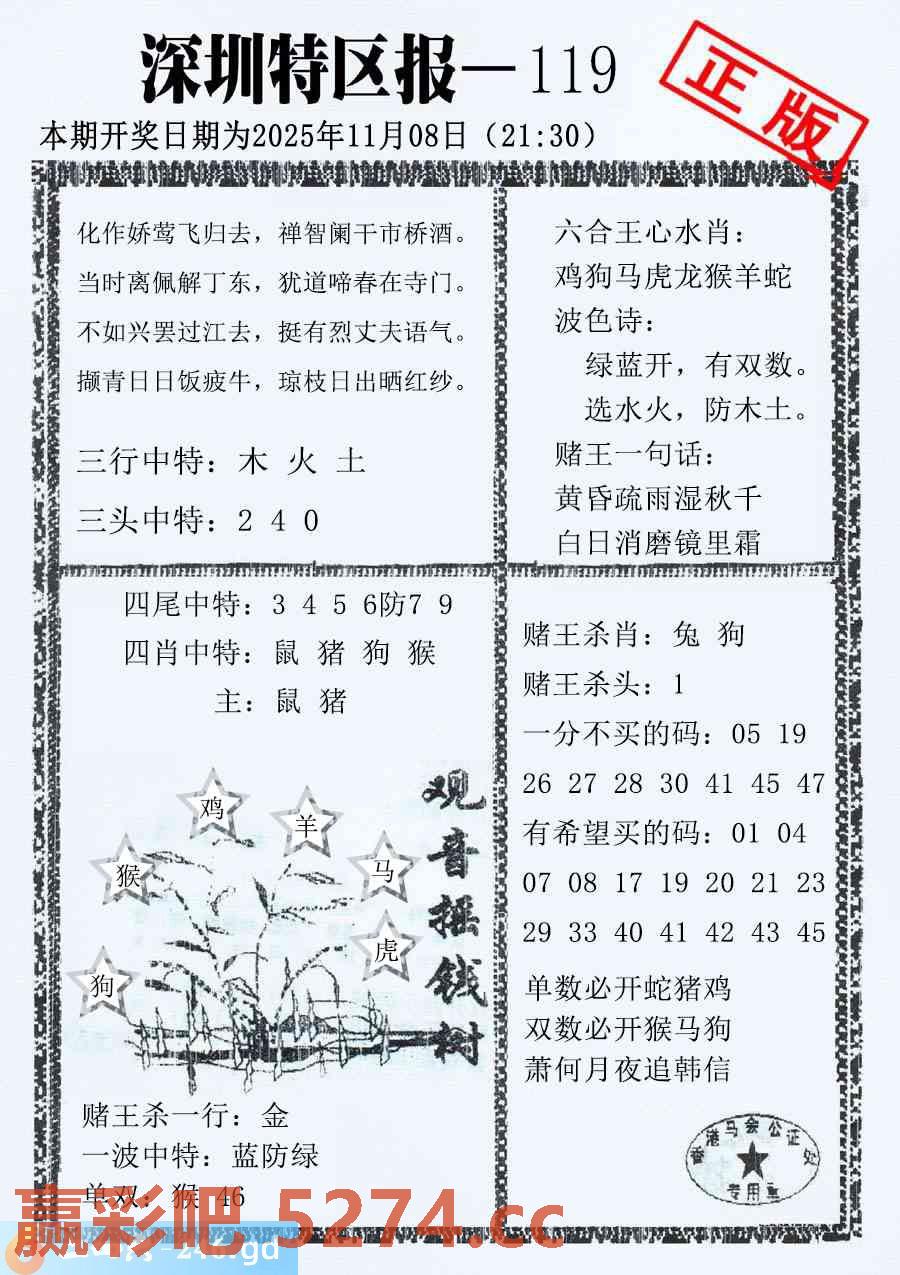 深圳特区报—119
正版
本期开奖日期为2025年11月08日（21:30）
化作娇莺飞归去，禅智阑干市桥酒。
当时离佩解丁东，犹道啼春在寺门。
不如兴罢过江去，挺有烈丈夫语气。
撷青日日饭疲牛，琼枝日出晒红纱。
三行中特：木 火 土
三头中特：2 4 0
六合王心水肖：
鸡狗马虎龙猴羊蛇
波色诗：
绿蓝开，有双数。
选水火，防木土。
赌王一句话：
黄昏疏雨湿秋千
白日消磨镜里霜
四尾中特：3 4 5 6防7 9
四肖中特：鼠 猪 狗 猴
主：鼠 猪
鸡
羊
猴
马
虎
狗
观音摇钱树
赌王杀一行：金
一波中特：蓝防绿
单双：猴 46
赌王杀肖：兔 狗
赌王杀头：1
一分不买的码：05 19
26 27 28 30 41 45 47
有希望买的码：01 04
07 08 17 19 20 21 23
29 33 40 41 42 43 45
单数必开蛇猪鸡
双数必开猴马狗
萧何月夜追韩信
香港马会公证处
专用章
赢彩吧 5274.cc